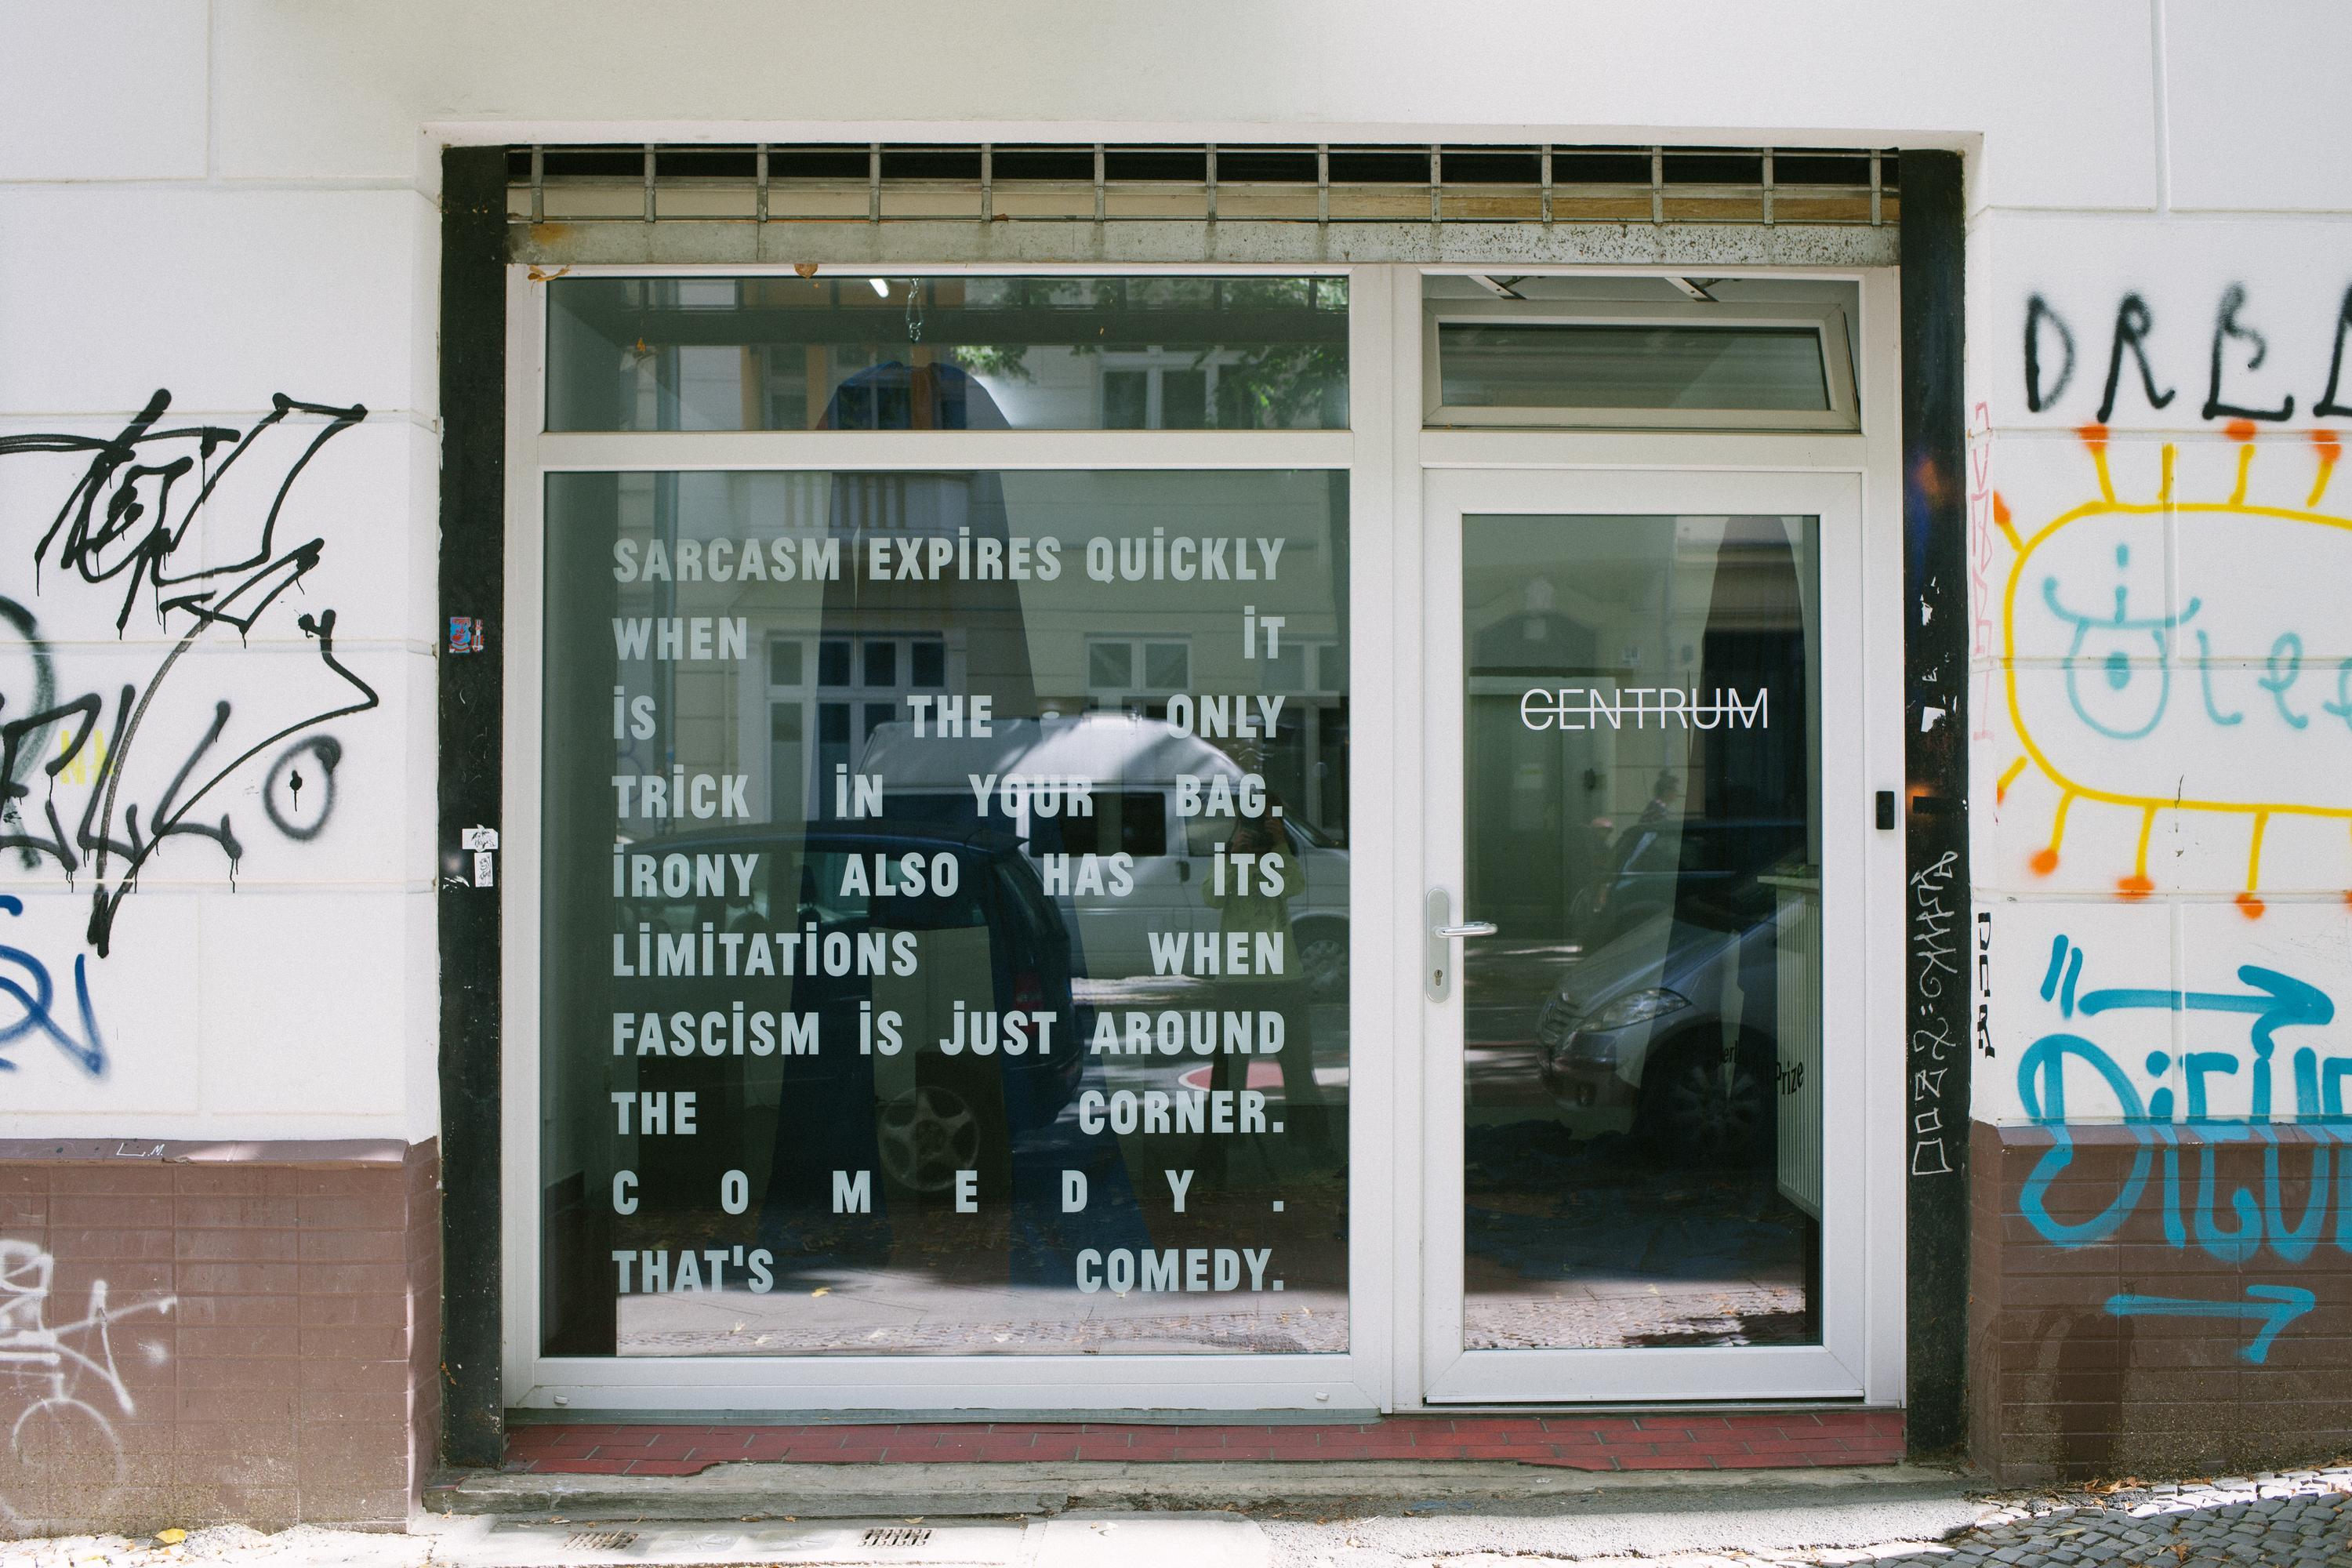 SARCASM EXPİRES QUİCKLY
WHEN İT
İS THE ONLY
TRİCK İN YOUR BAG.
İRONY ALSO HAS İTS
LİMİTATİONS WHEN
FASCİSM İS JUST AROUND
THE CORNER.
C O M E D Y .
THAT'S COMEDY.
CENTRUM
Prize
ELLO
L.M.